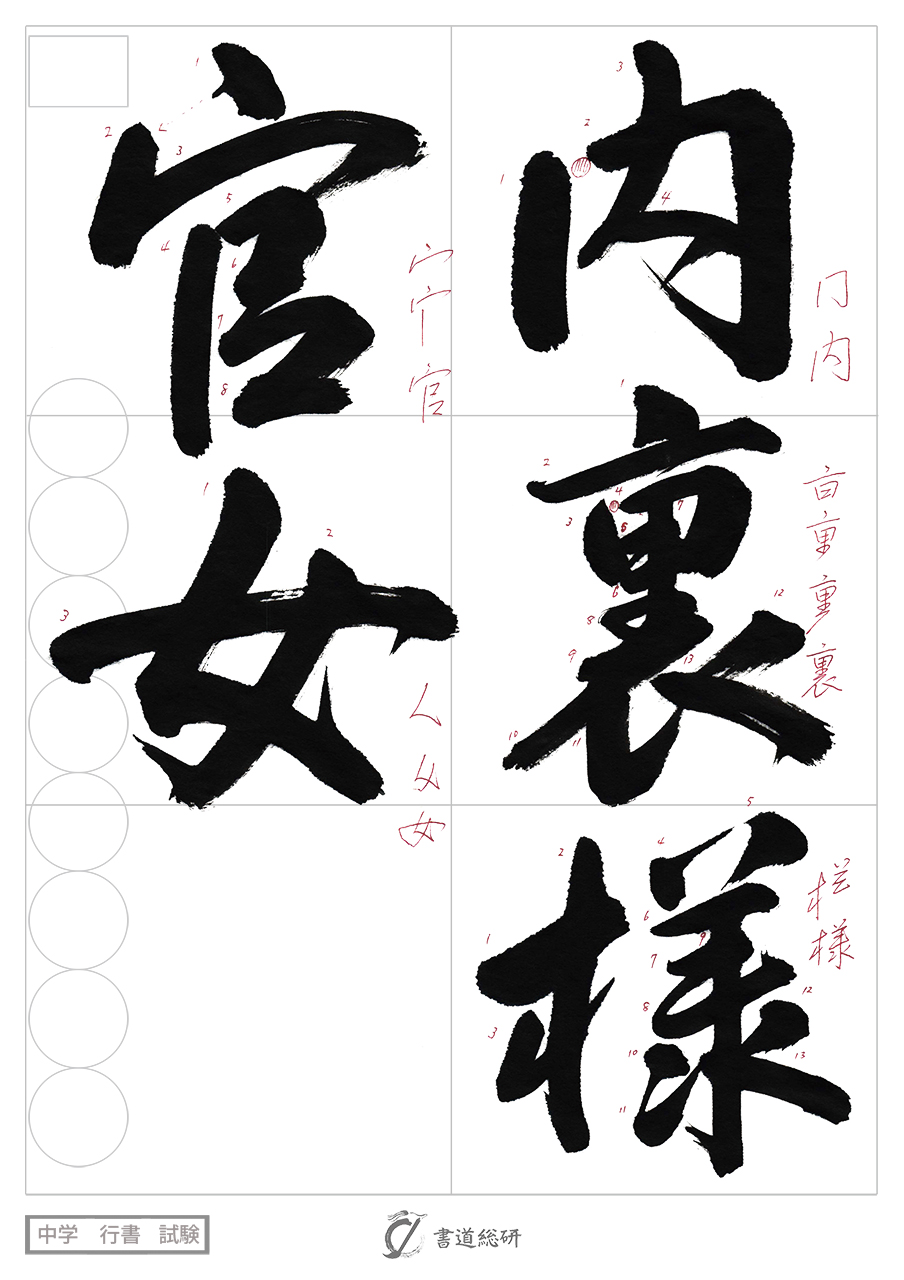 内裏様
官女
中学 行書 試験
書道総研